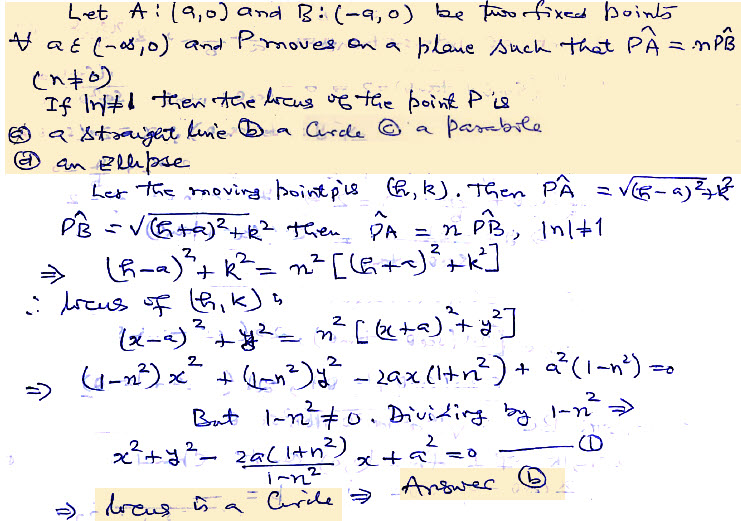 Let A : (a,0) and B : (-a,0) be two fixed points
∀ a ε (-∞,0) and P moves on a plane such that PÂ = n PB̂
(n ≠ 0)
If |n| ≠ 1 then the locus of the point P is
(a) a straight line (b) a Circle (c) a parabola
(d) an Ellipse
Let the moving point p is (h, k). Then PÂ = √(h-a)²+k²
PB̂ = √(h+a)²+k² then P̂A = n PB̂, |n| ≠ 1
⇒ (h-a)² + k² = n² [(h+a)² + k²]
∴ locus of (h, k) is
(x-a)² + y² = n² [(x+a)² + y²]
⇒ (1-n²) x² + (1-n²) y² - 2ax (1+n²) + a² (1-n²) = 0
But 1-n² ≠ 0. Dividing by 1-n² ⇒
x² + y² - 2a(1+n²)/(1-n²) x + a² = 0 ——— (1)
⇒ locus is a Circle ⇒ Answer (b)